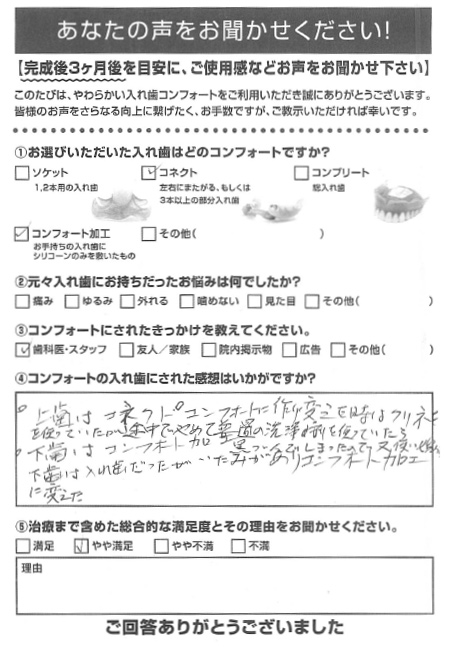 あなたの声をお聞かせください!
【完成後3ヶ月後を目安に、ご使用感などお声をお聞かせ下さい】
このたびは、やわらかい入れ歯コンフォートをご利用いただき誠にありがとうございます。
皆様のお声をさらなる向上に繋げたく、お手数ですが、ご教示いただければ幸いです。
①お選びいただいた入れ歯はどのコンフォートですか?
□ソケット ☑コネクト □コンプリート
1,2本用の入れ歯 左右にまたがる、もしくは 総入れ歯
3本以上の部分入れ歯
☑コンフォート加工 □その他( )
お手持ちの入れ歯に
シリコーンのみを敷いたもの
②元々入れ歯にお持ちだったお悩みは何でしたか?
□痛み □ゆるみ □外れる □噛めない □見た目 □その他( )
③コンフォートにされたきっかけを教えてください。
☑歯科医・スタッフ □友人/家族 □院内掲示物 □広告 □その他( )
④コンフォートの入れ歯にされた感想はいかがですか?
上歯はコネクト コンフォートに作り変え
を使っていたが途中でやめて の洗浄剤を使っていたら
下歯はコンフォート加工 黒っぽくなってしまったので又使い
下歯は入れ歯だったがいたみがありコンフォート加工
に変えた
⑤治療まで含めた総合的な満足度とその理由をお聞かせください。
□満足 ☑やや満足 □やや不満 □不満
理由
ご回答ありがとうございました